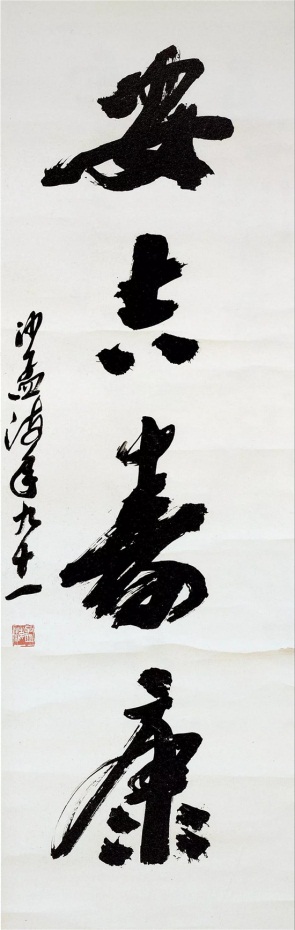 安吉寿康
沙孟海年九十一